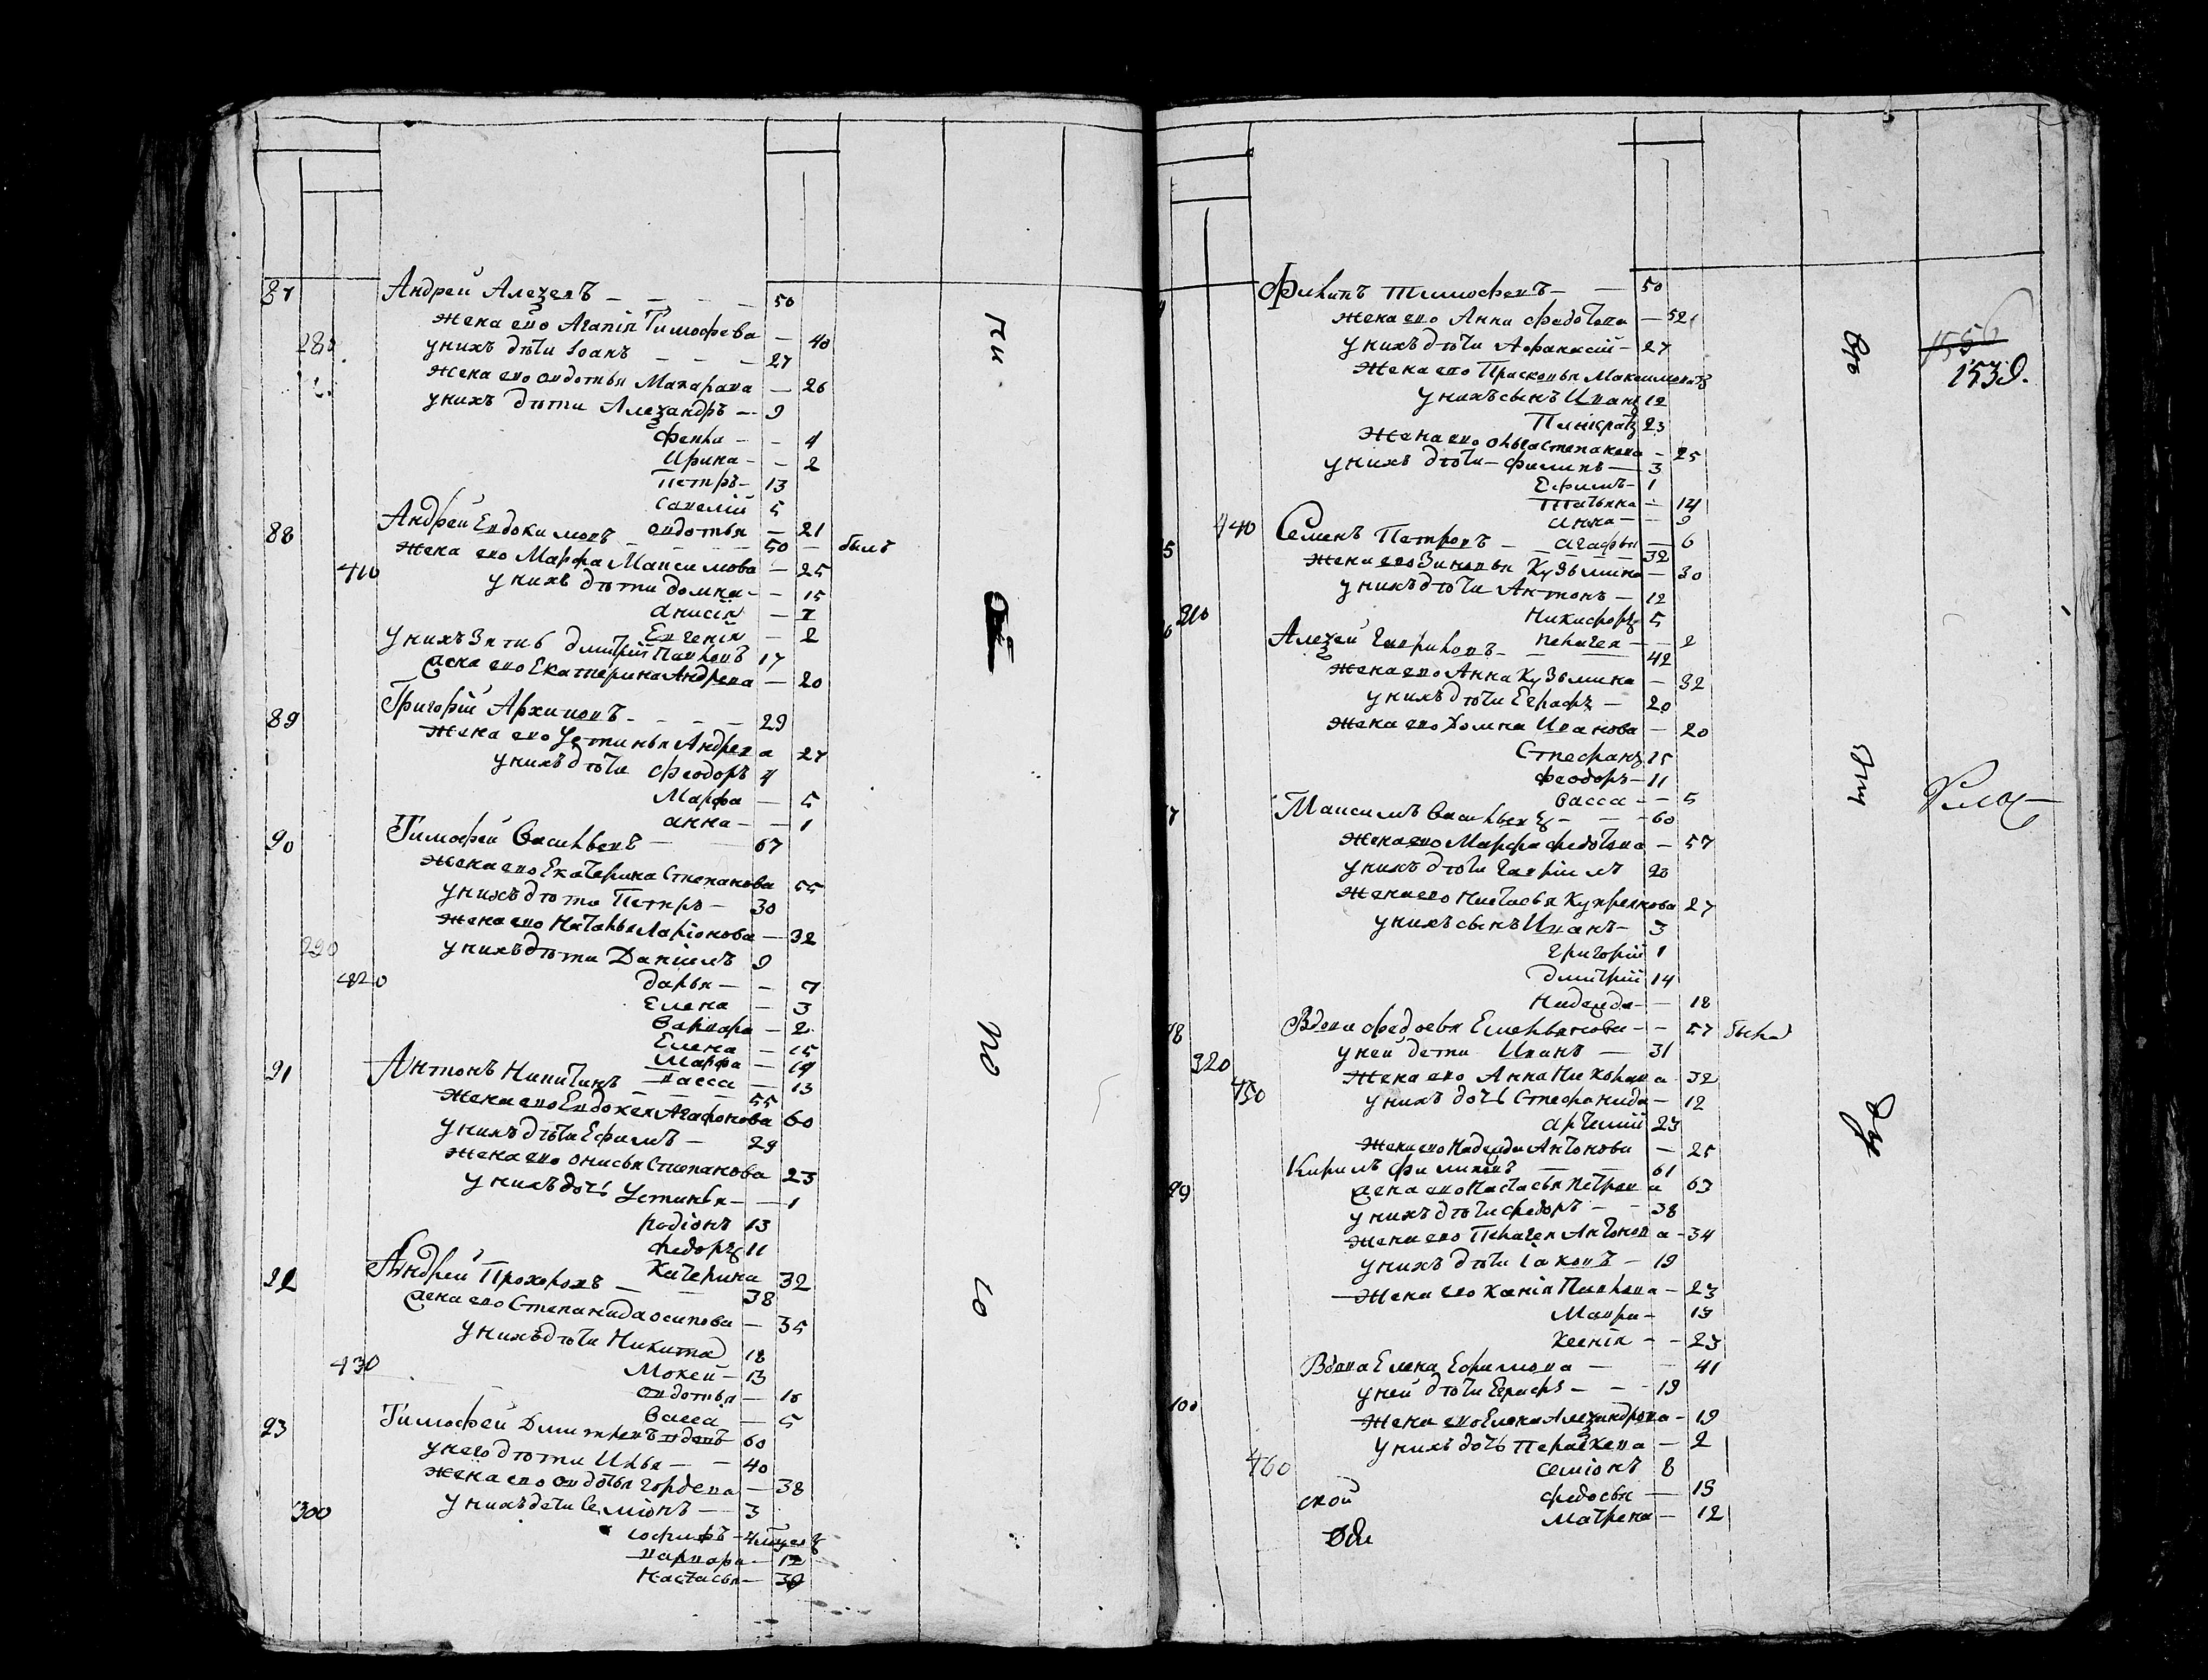 87 Андрей Алеѯевъ — 50
Жена ево Агапія Тимофеева — 40
280 у нихъ дѣти Іоанъ — 27
Жена ево овдотья Макарава — 26
у нихъ дѣти Алеѯандръ — 9
фекла — 4
Ирина — 2
Петръ — 13
Савелій 5
овдотья — 21
88 Андрей Евдокимовъ — 50 — былъ
Жена ево Марфа Маѯимова — 25
410 у нихъ дѣти домна — 15
Анисія —
Евгенія — 2
у нихъ зять дмитрій Павловъ 17
жена ево Екатерина Андрева — 20
89 Григорій Архиповъ — 29
Жена ево Устинья Андрева 27
у нихъ дѣти феодоръ 4
Марфа — 5
анна — 1
90 Тимофей Васильевъ — 67
Жена ево Екатерина Степанова 55
у нихъ дѣти Петръ — 30
Жена ево Наталья Ларіонова — 32
290 у нихъ дѣти Даніилъ 9
420 дарья — 7
Елена — 3
Варвара — 2
Елена — 15
Марфа — 14
васса — 13
91 Антонъ Никитинъ — 55
Жена ево Евдокея Агафонова 60
у нихъ дѣти Ефимъ — 29
Жена ево онисья Степанова 23
у нихъ дочь Устинья — 1
родіонъ 13
федоръ 11
Катерина 32
92 Андрей Прохоровъ — 38
жена ево Степанида осипова — 35
у нихъ дѣти Никита 18
430 Мокей — 13
овдотья — 10
Васса — 5
93 Тимофей Дмитревъ вдовъ 60
у него дѣти Илья — 40
Жена ево овдотья гордева — 38
300 у нихъ дети Семіонъ — 3
іосифъ — 4
варвара — 12
Настасья — 30
ки
по
со
Филипъ Тимофевъ — 50
Жена ево Анна федотова — 52
у нихъ дѣти Афанасій — 27
Жена ево Прасковья Маѯимова
у нихъ сынъ Иванъ 12
Панкратъ 23
Жена ево ольга степанова — 25
у нихъ дѣти — филипъ — 3
Ефимъ — 1
Татьяна — 14
Анна — 9
агафья — 6
5 440 Семенъ Петровъ — 32
Жена ево Зиновья Кузьмина — 30
у нихъ дѣти Антонъ — 12
310 Никифоръ 5
пелагея — 2
6 Алеѯей Гавриловъ — 42
Жена ево Анна Кузьмина — 32
у нихъ дѣти Еграфъ — 20
Жена ево Домна Иванова — 20
Стефанъ 15
феодоръ — 11
васса — 5
7 Маѯимъ Васильевъ — 60
Жена ево Марфа федотова — 57
у нихъ дѣти гаврилъ 20
Жена ево Настасья Купреянова 27
у нихъ сынъ Иванъ — 3
григорій 1
дмитрій 14
Надежда — 18
98 Вдова федосья Емельянова — 57 была
у ней дети Иванъ — 31
320 Жена ево Анна Николава 32
450 у нихъ дочь Стефанида — 12
артемій 23
Жена ево Надежда Антонова — 25
99 Кирилъ филиповъ — 61
жена ево Настасья петрова 63
у нихъ дѣти федоръ — 38
Жена ево Пелагея Антонова — 34
у нихъ дѣти іаковъ — 19
Жена ево Ксенія Павлова — 23
Мавра — 13
Ксенія — 23
100 Вдова Елена Ефимова — 41
у ней дѣти Еграфъ — 19
Жена ево Елена Алеѯандрова — 19
у нихъ дочь параскева — 2
460 семіонъ 8
федосья — 15
матрена — 12
ской
1556
1539.